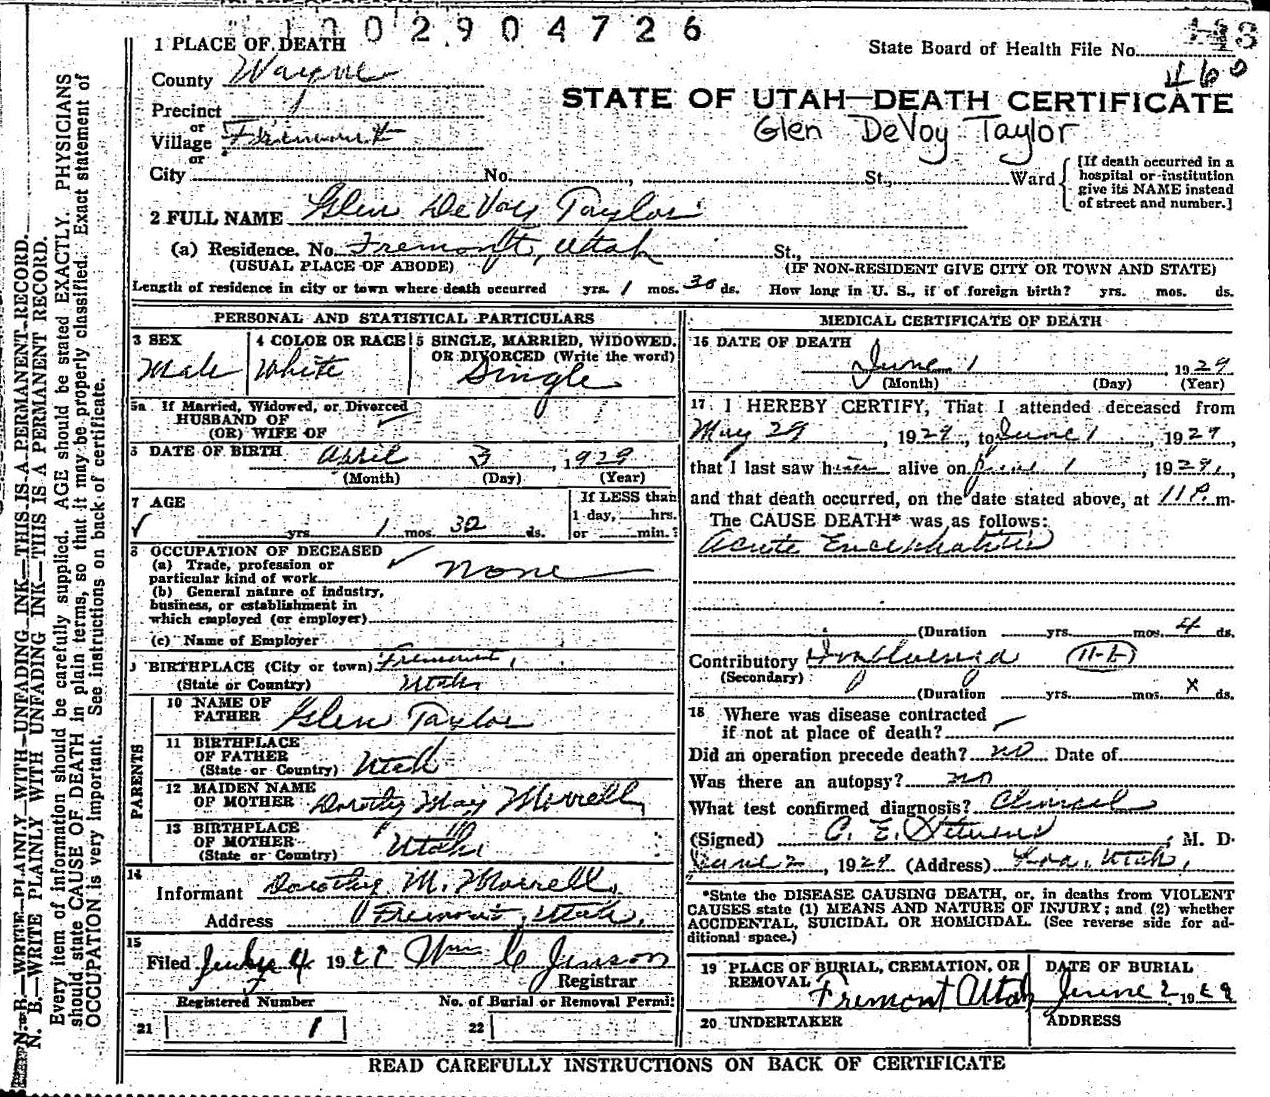 1002904726
1 PLACE OF DEATH
State Board of Health File No.
County Wayne
460
Precinct
STATE OF UTAH—DEATH CERTIFICATE
or
Village Fremont
Glen DeVoy Taylor
or
City No. , St., Ward
[If death occurred in a
hospital or institution
give its NAME instead
of street and number.]
2 FULL NAME Glen DeVoy Taylor
(a) Residence. No. Fremont, Utah St.,
(USUAL PLACE OF ABODE) (IF NON-RESIDENT GIVE CITY OR TOWN AND STATE)
Length of residence in city or town where death occurred yrs. 1 mos. 30 ds. How long in U. S., if of foreign birth? yrs. mos. ds.
PERSONAL AND STATISTICAL PARTICULARS
3 SEX 4 COLOR OR RACE 5 SINGLE, MARRIED, WIDOWED,
OR DIVORCED (Write the word)
Male White Single
5a If Married, Widowed, or Divorced
HUSBAND OF
(OR) WIFE OF
6 DATE OF BIRTH April 3, 1929
(Month) (Day) (Year)
7 AGE If LESS than
1 day, hrs.
yrs. 1 mos. 30 ds. or min.?
8 OCCUPATION OF DECEASED
(a) Trade, profession or
particular kind of work None
(b) General nature of industry,
business, or establishment in
which employed (or employer)
(c) Name of Employer
9 BIRTHPLACE (City or town) Fremont,
(State or Country) Utah
PARENTS
10 NAME OF
FATHER Glen Taylor
11 BIRTHPLACE
OF FATHER
(State or Country) Utah
12 MAIDEN NAME
OF MOTHER Dorothy May Morrell
13 BIRTHPLACE
OF MOTHER
(State or Country) Utah
14
Informant Dorothy M. Morrell
Address Fremont, Utah.
15
Filed July 4 19 Wm C Jenson
Registrar
Registered Number No. of Burial or Removal Permit
21 1 22
MEDICAL CERTIFICATE OF DEATH
16 DATE OF DEATH
June 1 1929
(Month) (Day) (Year)
17 I HEREBY CERTIFY, That I attended deceased from
May 29, 1929, to June 1, 1929,
that I last saw him alive on June 1, 1929,
and that death occurred, on the date stated above, at 11 P. m.
The CAUSE DEATH* was as follows:
Acute Encephalitis
(Duration yrs. mos. 4 ds.
Contributory Influenza (11-b)
(Secondary)
(Duration yrs. mos. X ds.
18 Where was disease contracted
if not at place of death?
Did an operation precede death? no Date of
Was there an autopsy? no
What test confirmed diagnosis? Clinical
(Signed) C. E. Stevens, M. D.
June 2, 1929 (Address) Loa, Utah,
*State the DISEASE CAUSING DEATH, or, in deaths from VIOLENT
CAUSES state (1) MEANS AND NATURE OF INJURY; and (2) whether
ACCIDENTAL, SUICIDAL OR HOMICIDAL. (See reverse side for ad-
ditional space.)
19 PLACE OF BURIAL, CREMATION, OR
REMOVAL Fremont Utah
DATE OF BURIAL
June 2 1929
20 UNDERTAKER ADDRESS
READ CAREFULLY INSTRUCTIONS ON BACK OF CERTIFICATE
N. B.—WRITE PLAINLY WITH UNFADING INK—THIS IS A PERMANENT RECORD.
N. B.—WRITE PLAINLY WITH UNFADING INK—THIS IS A PERMANENT RECORD.
Every item of information should be carefully supplied. AGE should be stated EXACTLY. PHYSICIANS
should state CAUSE OF DEATH in plain terms, so that it may be properly classified. Exact statement of
OCCUPATION is very important. See instructions on back of certificate.